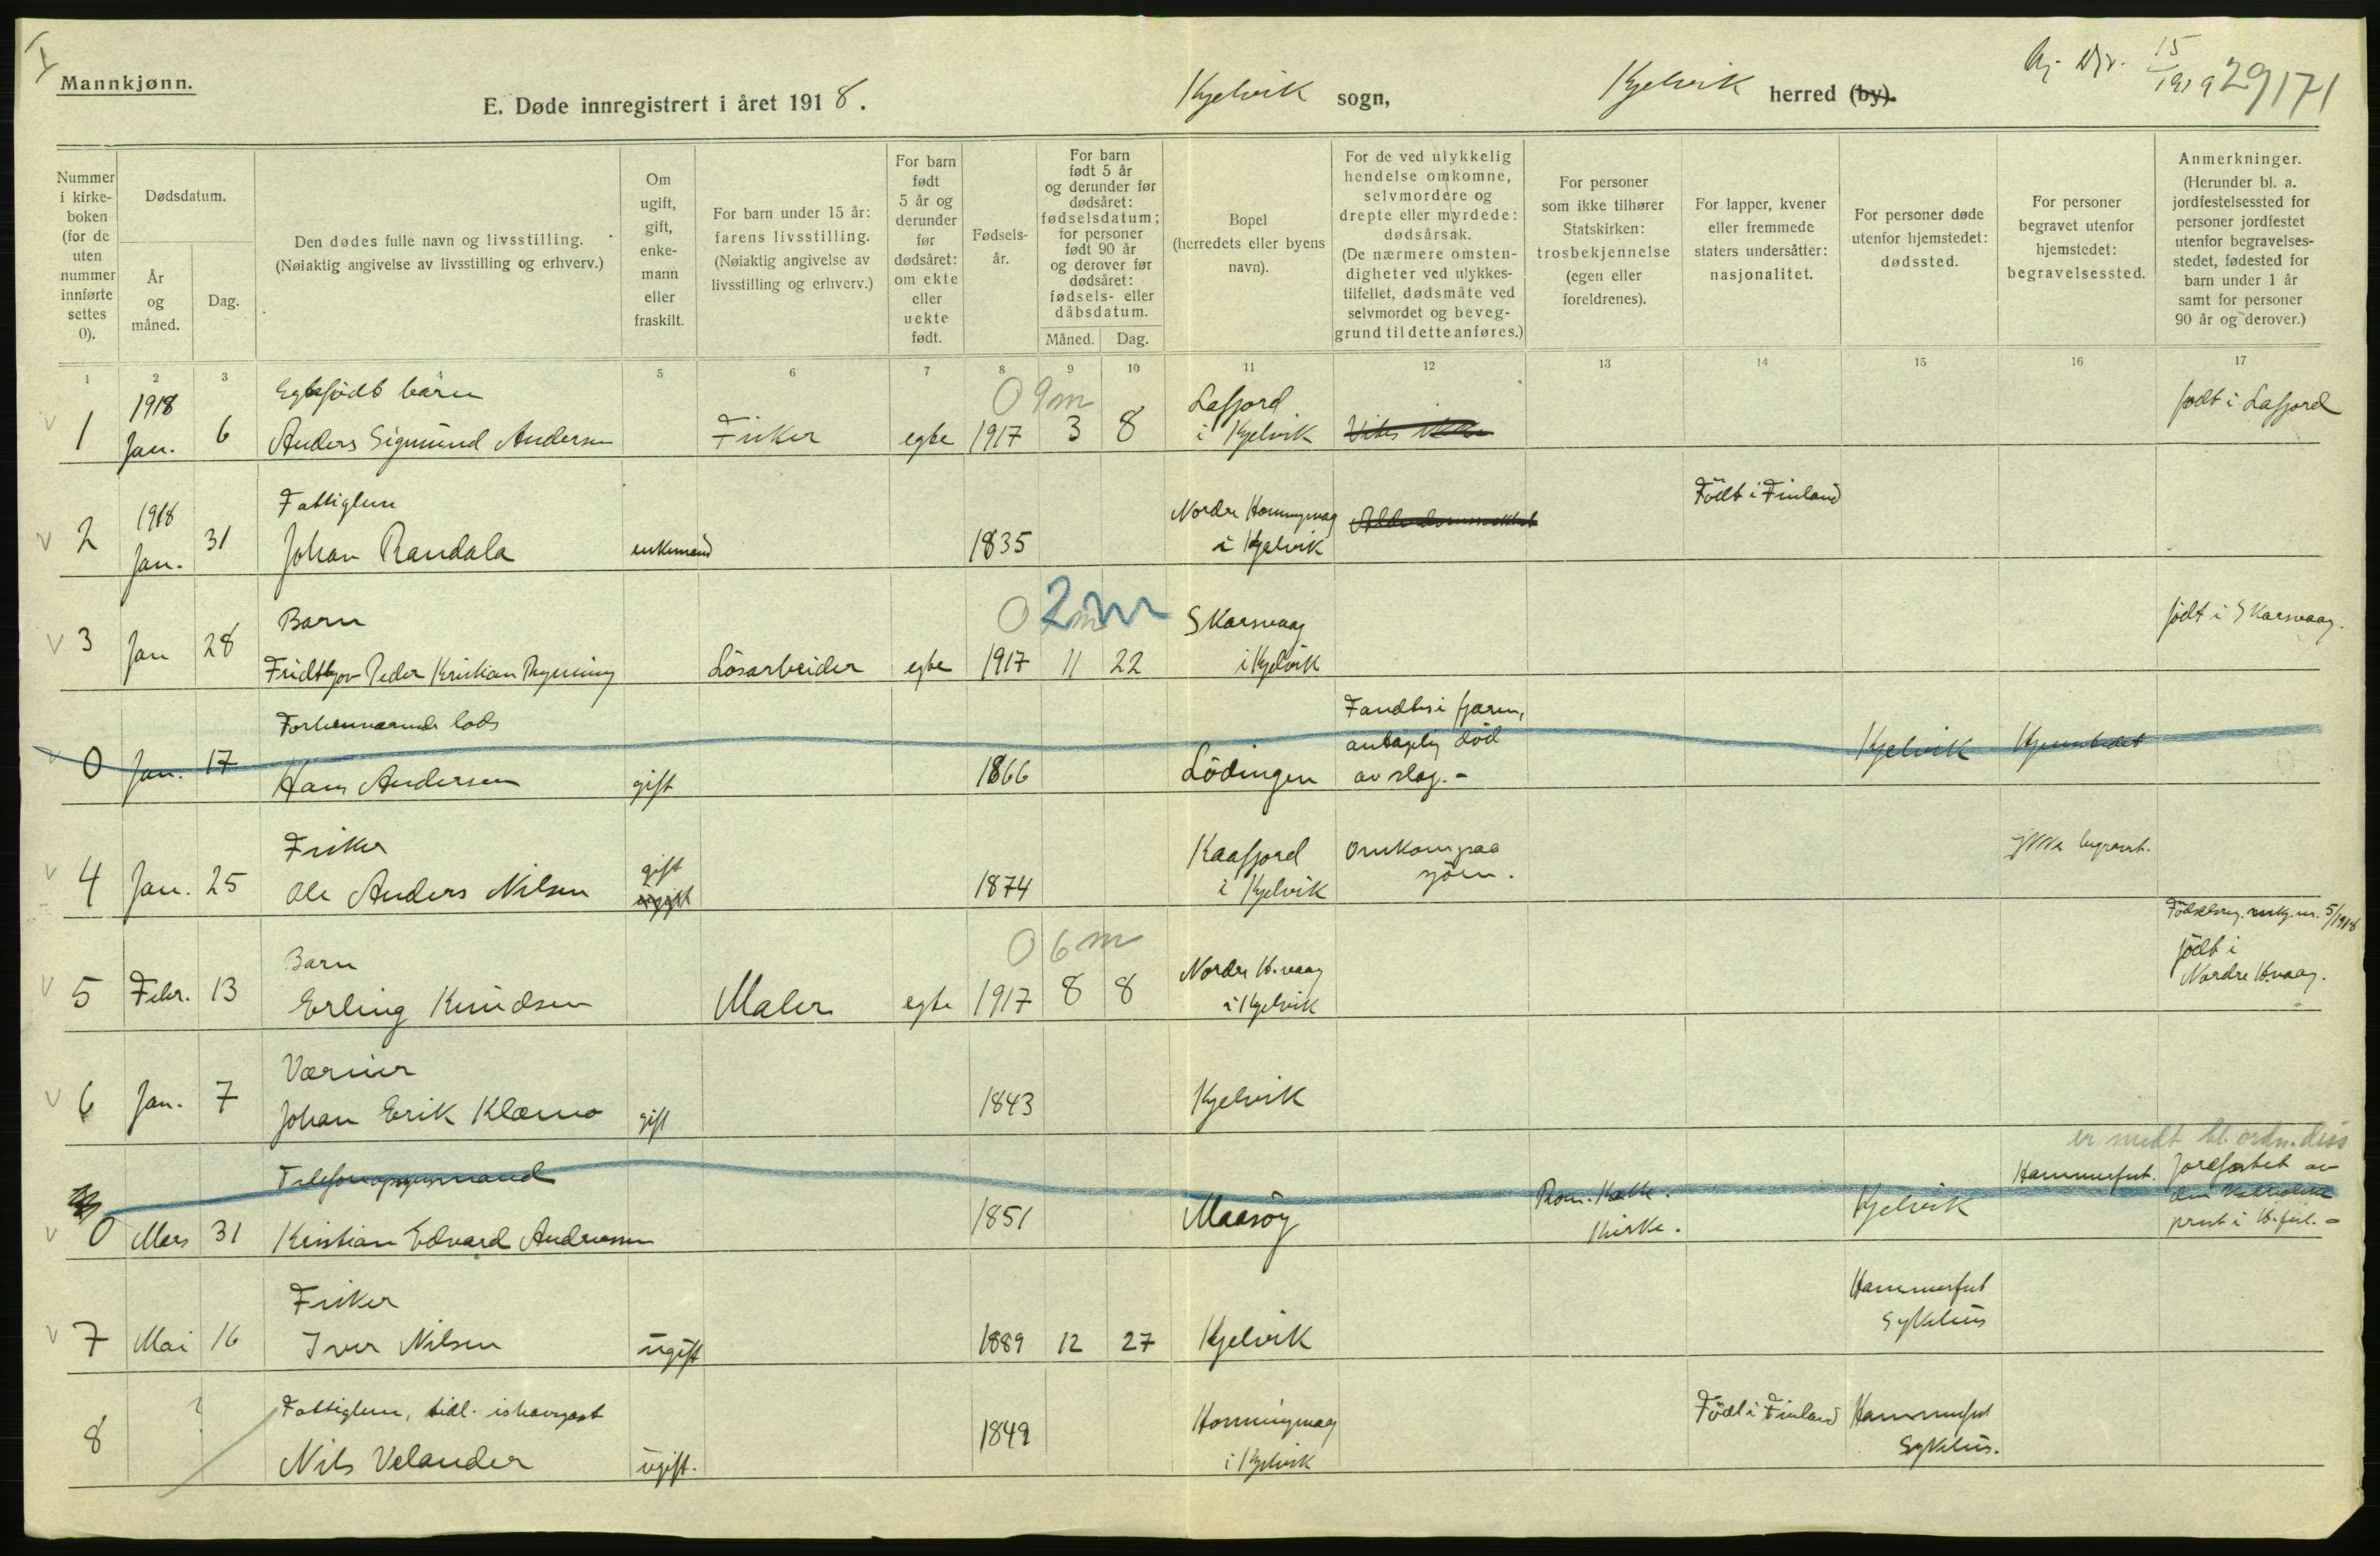 I
Mannkjønn.
E. Døde innregistrert i året 1918.
Kjelvik sogn,
Kjelvik herred (by).
15
1919
29171
Nummer i kirke-boken (for de uten nummer innførte settes 0).
Dødsdatum.
År og måned.
Dag.
Den dødes fulle navn og livsstilling.
(Nøiaktig angivelse av livsstilling og erhverv.)
Om ugift, gift, enke-mann eller fraskilt.
For barn under 15 år: farens livsstilling. (Nøiaktig angivelse av livsstilling og erhverv.)
For barn født 5 år og derunder før dødsåret: om ekte eller uekte født.
Fødsels-år.
For barn født 5 år og derunder før dødsåret: fødselsdatum; for personer født 90 år og derover før dødsåret: fødsels- eller dåbsdatum.
Måned. Dag.
Bopel (herredets eller byens navn).
For de ved ulykkelig hendelse omkomne, selvmordere og drepte eller myrdede: dødsårsak. (De nærmere omsten-digheter ved ulykkes-tilfellet, dødsmåte ved selvmordet og beveg-grund til dette anføres.)
For personer som ikke tilhører Statskirken: trosbekjennelse (egen eller foreldrenes).
For lapper, kvener eller fremmede staters undersåtter: nasjonalitet.
For personer døde utenfor hjemstedet: dødssted.
For personer begravet utenfor hjemstedet: begravelsessted.
Anmerkninger. (Herunder bl. a. jordfestelsessted for personer jordfestet utenfor begravelses-stedet, fødested for barn under 1 år samt for personer 90 år og derover.)
1 2 3 4 5 6 7 8 9 10 11 12 13 14 15 16 17
1918 Egtefödt barn 0 9m Lafjord födt i Lafjord
1 Jan. 6 Anders Sigmund Andersen Fisker egte 1917 3 8 i Kjelvik Vites ikke
1918 Fattiglem Nordre Honningvaag Födt i Finland
2 Jan. 31 Johan Randala enkemand 1835 i Kjelvik Alderdomssvakhet
Barn 0 2m Skarsvaag födt i Skarsvaag.
3 Jan 28 Fridtjov Peder Kristian Lösarbeider egte 1917 11 22 i Kjelvik
Forhenværende lods Fandtes i fjæren, antagelig död
0 Jan. 17 Hans Andersen gift 1866 Lödingen av slag. - Kjelvik Hjemstedet
Fisker gift Kaafjord Omkom paa ikke begravet.
4 Jan. 25 Ole Anders Nilsen ugift 1874 i Kjelvik sjöen.
Födselsreg. nr. 5/1918
Barn 0 6m Nordre H.vaag födt i
5 Febr. 13 Erling Knudsen Maler egte 1917 8 8 i Kjelvik Nordre H.vaag.
Værmer
6 Jan. 7 Johan Erik Klæmo gift 1843 Kjelvik
er meldt bl. ordn. diss
Telefonopsynsmand Rom. Kath. Hammerfest. Jordfæstet av den katholske
0 Mars 31 Kristian Edvard Andreassen 1851 Maasöy Kirke. Kjelvik prest i H.fest. -
Fisker Hammerfest
7 Mai 16 Iver Nilsen ugift 1889 12 27 Kjelvik Sykehus
? Fattiglem, tidl. ishavsgast Honningvaag Födt i Finland Hammerfest
8 Nils Velander ugift. 1849 i Kjelvik Sykehus.